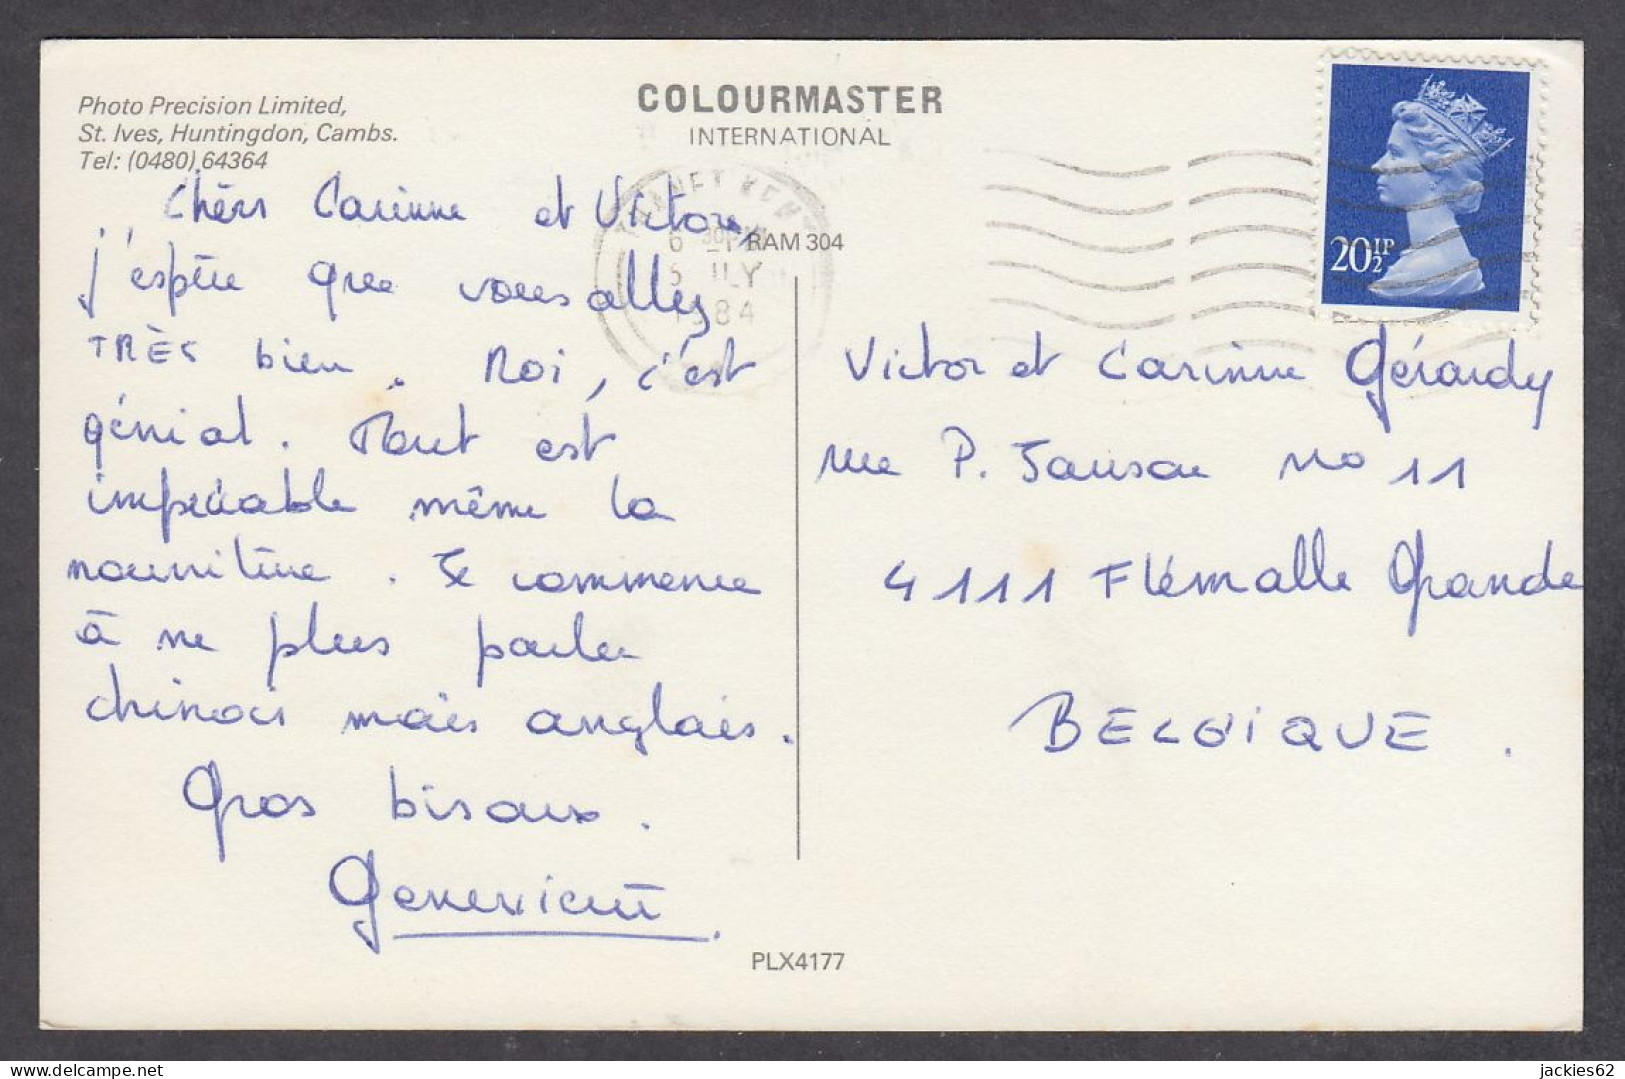 Photo Precision Limited,
St. Ives, Huntingdon, Cambs.
Tel: (0480) 64364
COLOURMASTER
INTERNATIONAL
THANET KENT
6 30PM
5 JLY
1984
20½P
RAM 304
Chers Carinne et Victor,
j'espère que vous allez
TRÈS bien. Moi, c'est
génial. Tout est
impeccable même la
nourriture. Je commence
à ne plus parler
chinois mais anglais.
Gros bisoux.
Geneviève.
Victor et Carinne Gérardy
rue P. Janson no 11
4111 Flémalle Grande
BELGIQUE.
PLX4177
jackies62